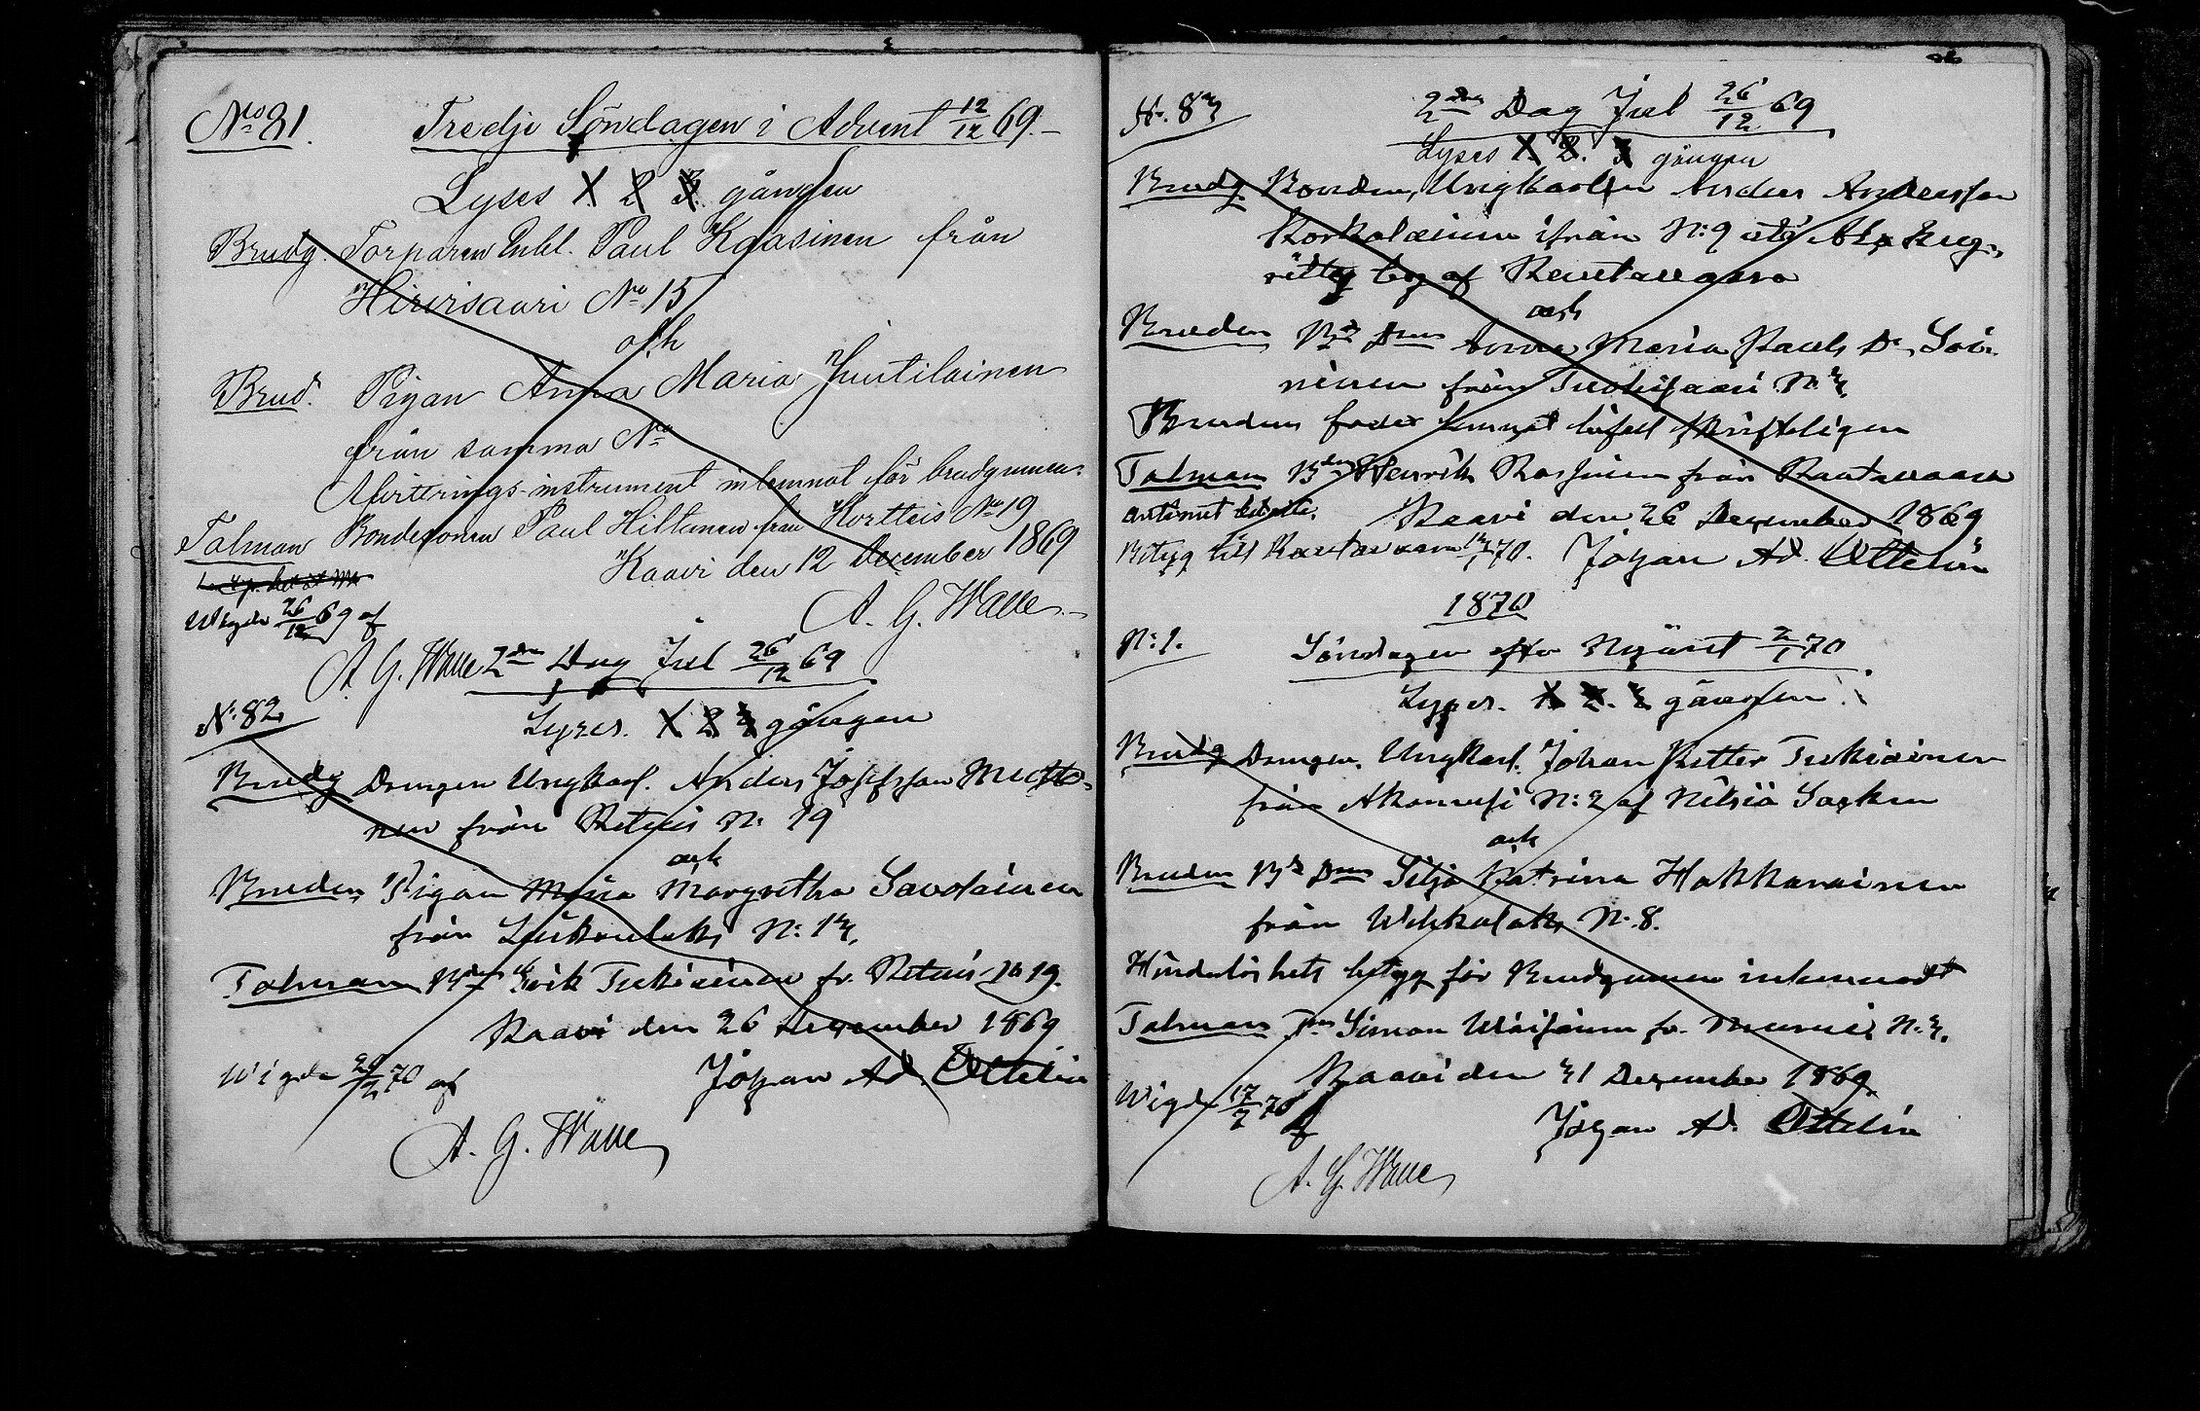 No 81. Tredje Söndagen i Advent 12/12 69.
Lyses 1. 2 3. gången
Brudg. Torparen Enkl. Paul Kaasinen från
Hirvisaari No 15
och
Brud. Pigan Anna Maria Juutilainen
från samma No
Afvittrings-instrument inlemnat för brudgummen.
Talman Bondesonen Paul Hiltunen från Kortteis No 19
Kaavi den 12 December 1869
A. G. Walle.
Wigde 26/12 69 af
A. G. Walle
2dra Dag Jul 26/12 69
N: 82
Lyses. 1 2 3 gången
Brudg Drengen Ungkarl. Anders Josefsson Musto-
nen från Retuis N: 19
och
Bruden Pigan Maria Margretha Savolainen
från Luikonlaks N: 13.
Talman Bd Erik Tukiainen fr. Retuis N 19.
Kaavi den 26 December 1869
Johan Ad. Ottelin
Wigde /2 70 af
A. G. Walle
N. 83
2dra Dag Jul 26/12 69
Lyses 1. 2. 3 gången
Brudg. Bonden, Ungkarlen Anders Andersson
Korkalainen ifrån N: 9 af Rautavaara
och
Bruden Bd Dtr Anna Maria Pauls Dr Soi-
ninen från Tuohisaari N: 3.
Brudens fader lemnat bifall skriftligen
Talman Bd Henrik från Rautavaara
Kaavi den 26 December 1869
Betyg till Rautavaara 13/1 70.
Johan Ad. Ottelin
1870
N: 1.
Söndagen efter Nyåret 2/1 70
Lyses. 1. 2. 3 gången
Brudg Drengen, Ungkarl. Johan Petter Tukiainen
från Akonvesi N: 2 af Nilsiä Socken
och
Bruden Bd Dtr Silja Katrina Hakkarainen
från Wehkalaks N. 8.
Hinderlöshets betyg för Brudgummen inlemnadt
Talman Simon Wäisänen fr. N: 3.
Kaavi den 31 December 1869
Johan Ad. Ottelin
Wigde 17/7 70 af
A. G. Walle